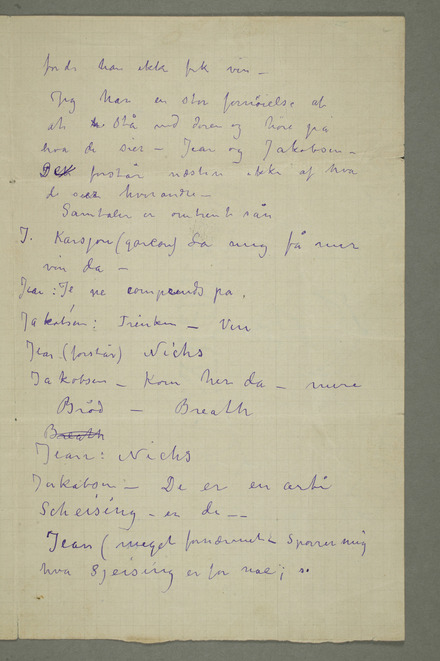 fordi han ikke fik vin –
Jeg har en stor fornöielse af
at stå ved dören og höre på
hva de sier – Jean og Jakobsen –
De forstår næsten ikke af hva
de sier hverandre –
Samtalen er omtrent sån
J. Karsjon (garcon) La mig få mer
vin da –
Jean: Je ne comprends pa.
Jakobsen: Trinken – Vin
Jean (forstår) Nichs
Jakobsen – Kom her da – mere
Bröd – Breath
Breath
Jean: Nichs
Jakobsen – De er en arti
Scheising – er de – –
Jean (meget fornærmet – Spörrer mig
hva Sjeising er for noe; s.